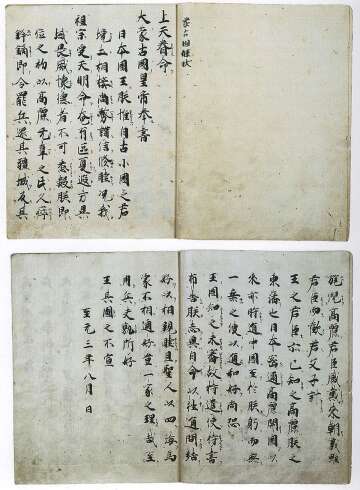 蒙古國牒状
上天眷命
大蒙古國皇帝奉書
日本國王朕惟自古小國之君
境土相接尚務講信修睦況我
祖宗受天明命奄有區夏遐方異
域畏威懷德者不可悉數朕即
位之初以高麗无辜之民久瘁
鋒鏑即令罷兵還其疆域反其
旄倪高麗君臣感戴來朝義雖
君臣而歡若父子計
王之君臣亦已知之高麗朕之
東藩也日本密邇高麗開國以
來亦時通中國至於朕躬而無
一乗之使以通和好尚恐
王國知之未審故特遣使持書
布告朕志冀自今以往通問結
好以相親睦且聖人以四海為
家不相通好豈一家之理哉至
用兵夫孰所好
王其圖之不宣
至元三年八月 日